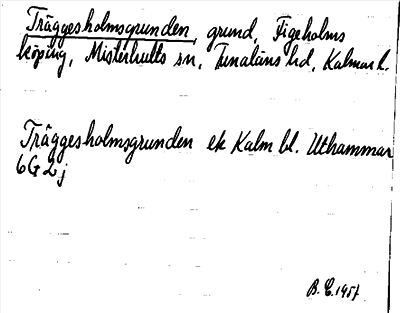 Träggesholmsgrunden, grund, Figeholms
köping, Misterhults sn, Tunaläns hd, Kalmar l.
Träggesholmsgrunden ek Kalm bl. Uthammar
6G2j
B.E. 1957